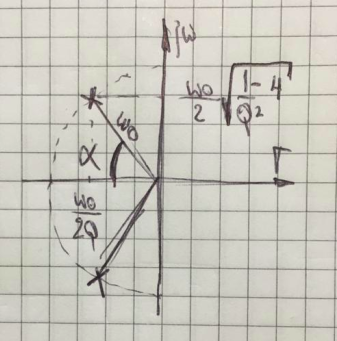 jω
ω0/2 √(1-4/Q²)
ω0
α
Γ
ω0/2Q